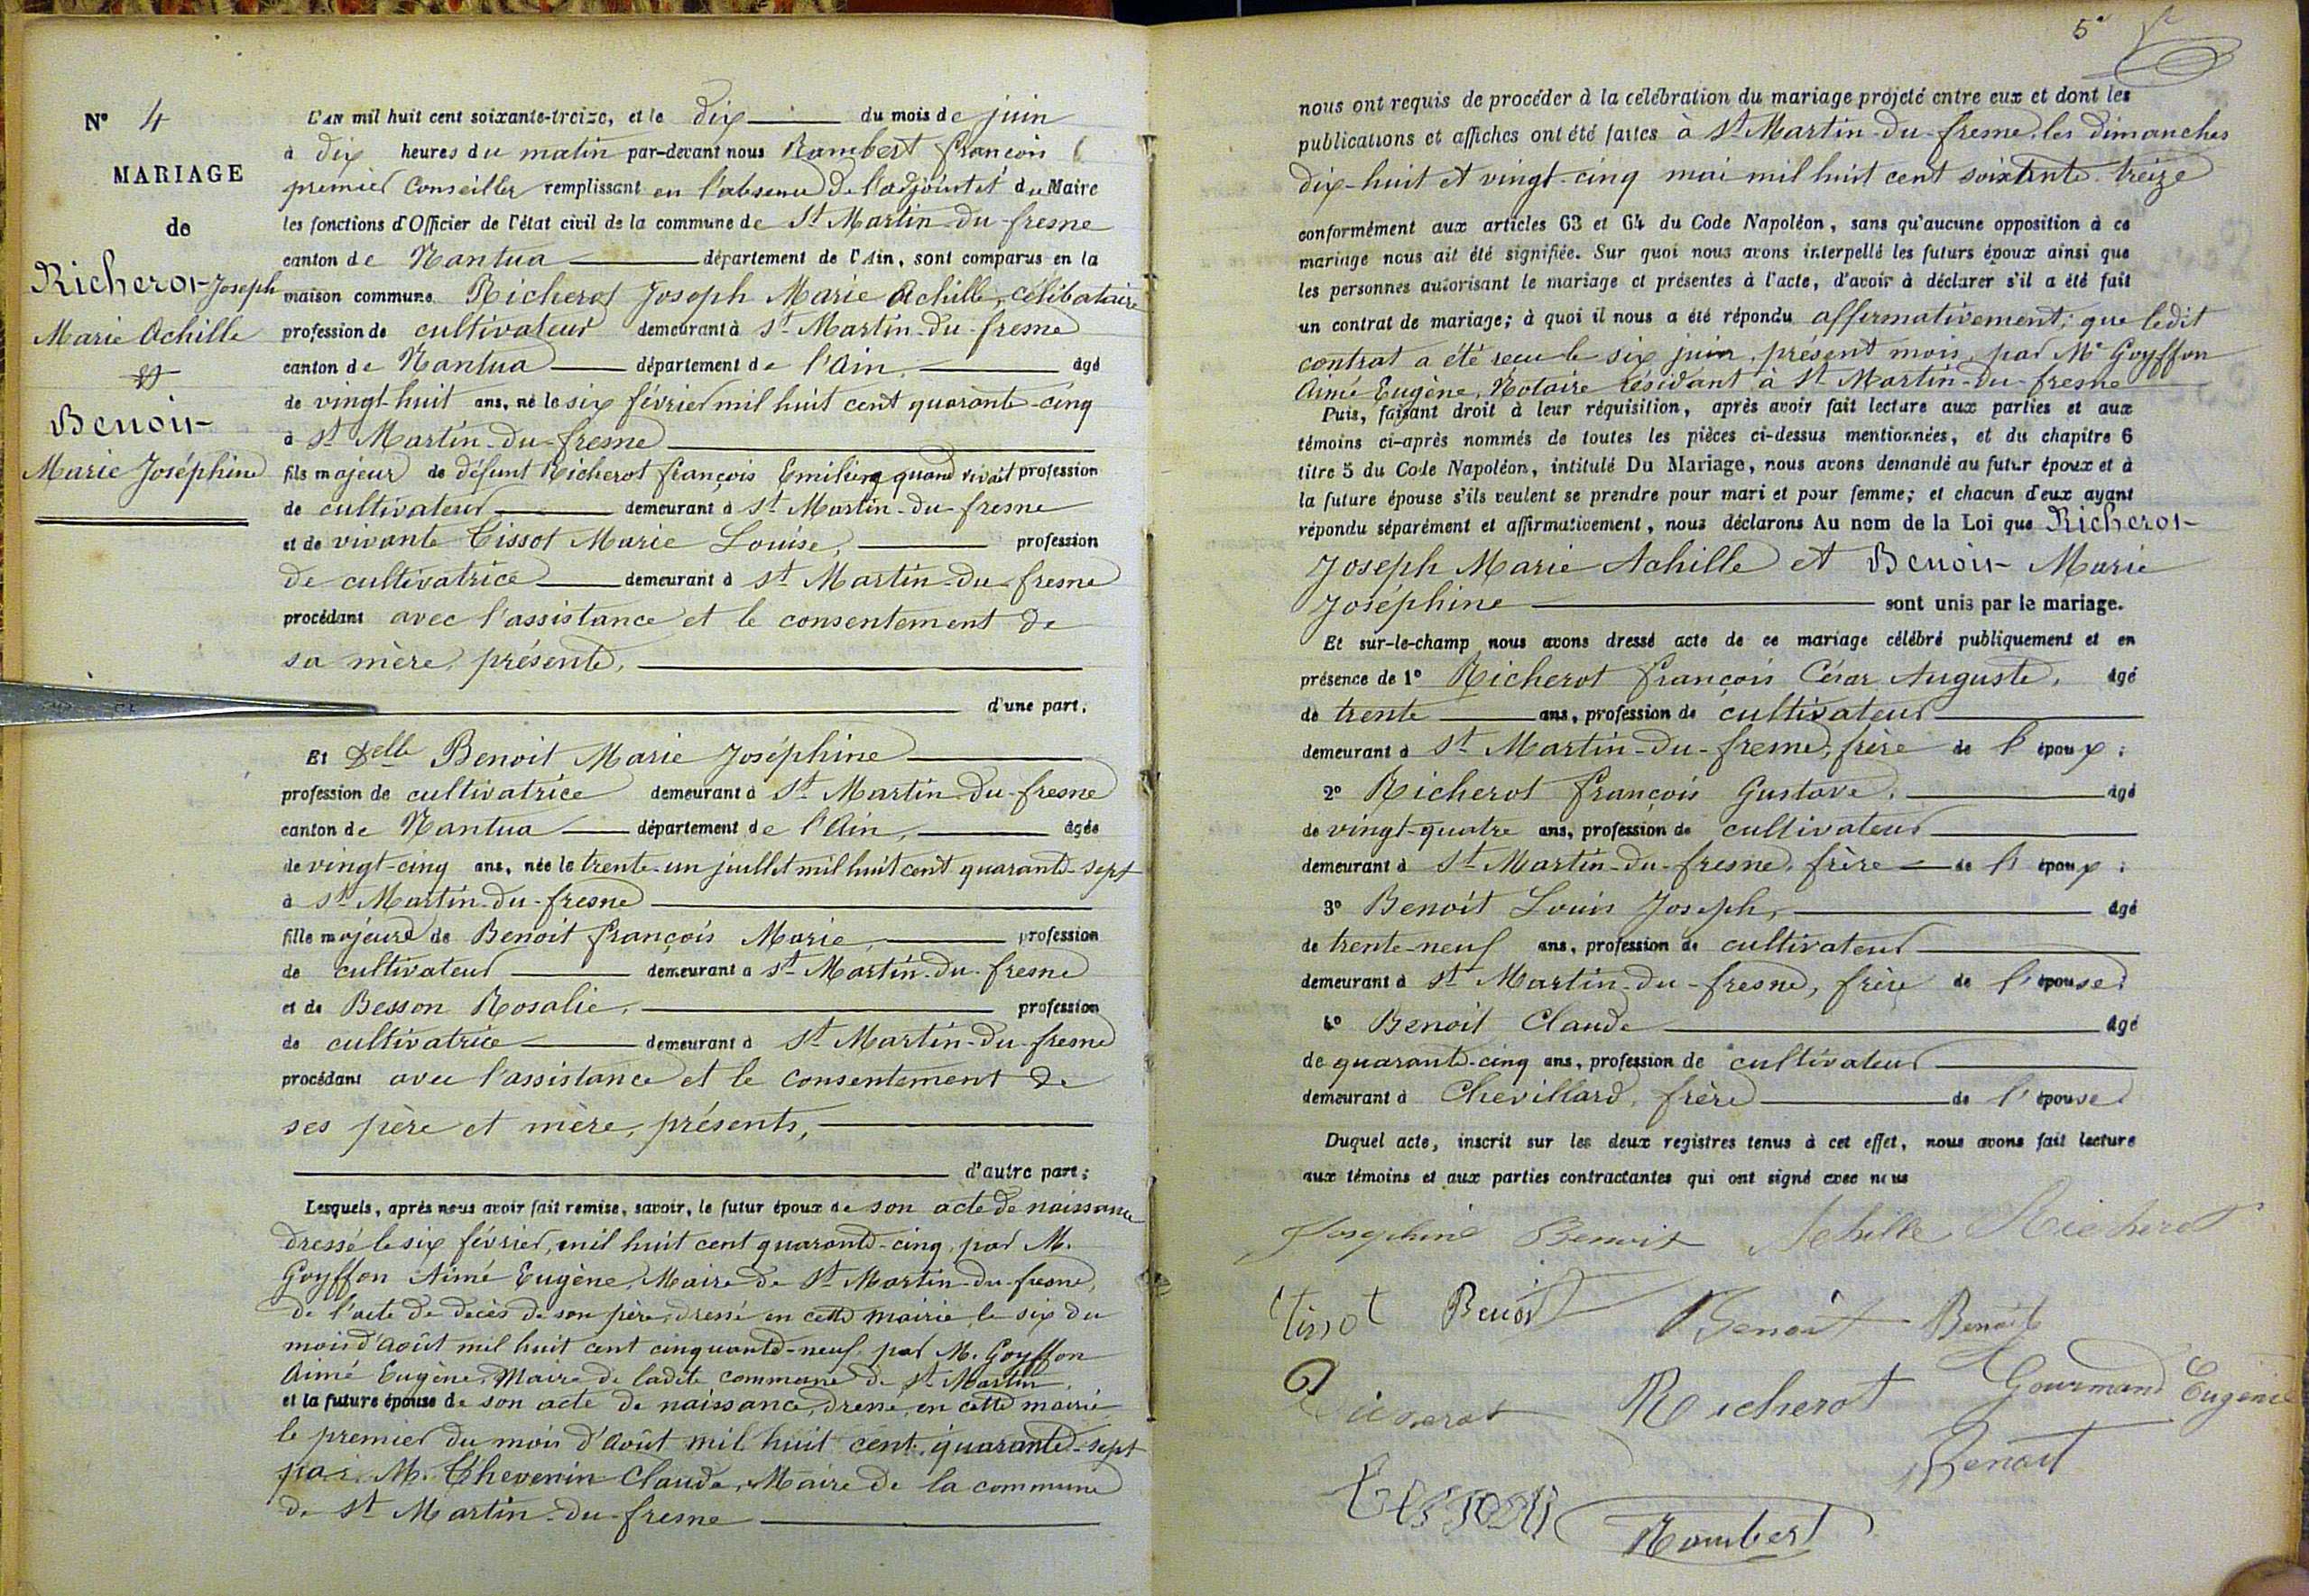 N° 4
MARIAGE
de
Richerot Joseph
Marie Achille
et
Benoit
Marie Joséphine
L'AN mil huit cent soixante-treize, et le dix du mois de juin
à dix heures du matin par-devant nous Rambert françois
premier Conseiller remplissant en l'absence de l'adjoint et du Maire
les fonctions d'Officier de l'état civil de la commune de St Martin-du-fresne
canton de Nantua département de l'Ain, sont comparus en la
maison commune Richerot Joseph Marie Achille, célibataire
profession de cultivateur demeurant à St Martin-du-fresne
canton de Nantua département de l'Ain, âgé
de vingt-huit ans, né le six février mil huit cent quarante-cinq
à St Martin-du-fresne
fils majeur de défunt Richerot françois Emilien quand vivait profession
de cultivateur demeurant à St Martin-du-fresne
et de vivante Tissot Marie Louise, profession
de cultivatrice demeurant à St Martin-du-fresne
procédant avec l'assistance et le consentement de
sa mère, présente,
d'une part,
Et Delle Benoit Marie Joséphine
profession de cultivatrice demeurant à St Martin-du-fresne
canton de Nantua département de l'Ain, âgée
de vingt-cinq ans, née le trente-un juillet mil huit cent quarante-sept
à St Martin-du-fresne
fille majeure de Benoit françois Marie, profession
de cultivateur demeurant à St Martin-du-fresne
et de Besson Rosalie, profession
de cultivatrice demeurant à St Martin-du-fresne
procédant avec l'assistance et le consentement de
ses père et mère, présents,
d'autre part;
Lesquels, après nous avoir fait remise, savoir, le futur époux de son acte de naissance
dressé le six février, mil huit cent quarante-cinq, par M.
Goyffon Aimé Eugène, Maire de St Martin-du-fresne,
de l'acte de décès de son père, dressé en cette mairie, le six du
mois d'août mil huit cent cinquante-neuf, par M. Goyffon
Aimé Eugène, Maire de ladite commune de St Martin,
et la future épouse de son acte de naissance, dressé, en cette mairie
le premier du mois d'août mil huit cent, quarante-sept
par M. Thevenin Claude, Maire de la commune
de St Martin-du-fresne
5
nous ont requis de procéder à la célébration du mariage projeté entre eux et dont les
publications et affiches ont été faites à St Martin-du-fresne, les dimanches
dix-huit et vingt-cinq mai mil huit cent soixante-treize
conformément aux articles 63 et 64 du Code Napoléon, sans qu'aucune opposition à ce
mariage nous ait été signifiée. Sur quoi nous avons interpellé les futurs époux ainsi que
les personnes autorisant le mariage et présentes à l'acte, d'avoir à déclarer s'il a été fait
un contrat de mariage; à quoi il nous a été répondu affirmativement; que ledit
contrat a été reçu le six juin, présent mois, par Me Goyffon
Aimé Eugène, Notaire résidant à St Martin-du-fresne
Puis, faisant droit à leur réquisition, après avoir fait lecture aux parties et aux
témoins ci-après nommés de toutes les pièces ci-dessus mentionnées, et du chapitre 6
titre 5 du Code Napoléon, intitulé Du Mariage, nous avons demandé au futur époux et à
la future épouse s'ils veulent se prendre pour mari et pour femme; et chacun d'eux ayant
répondu séparément et affirmativement, nous déclarons Au nom de la Loi que Richerot
Joseph Marie Achille et Benoit Marie
Joséphine sont unis par le mariage.
Et sur-le-champ nous avons dressé acte de ce mariage célébré publiquement et en
présence de 1° Richerot françois César Auguste, âgé
de trente ans, profession de cultivateur
demeurant à St Martin-du-fresne, frère de l'époux;
2° Richerot françois Gustave, âgé
de vingt-quatre ans, profession de cultivateur
demeurant à St Martin-du-fresne, frère de l'époux;
3° Benoit Louis Joseph, âgé
de trente-neuf ans, profession de cultivateur
demeurant à St Martin-du-fresne, frère de l'épouse;
4° Benoit Claude âgé
de quarante-cinq ans, profession de cultivateur
demeurant à Chevillard, frère de l'épouse
Duquel acte, inscrit sur les deux registres tenus à cet effet, nous avons fait lecture
aux témoins et aux parties contractantes qui ont signé avec nous
Josephine Benoit Achille Richerot
tissot Benoit Benoit Benoit
Richerot Richerot Gourmand Eugénie
Benoit
Besson Rambert